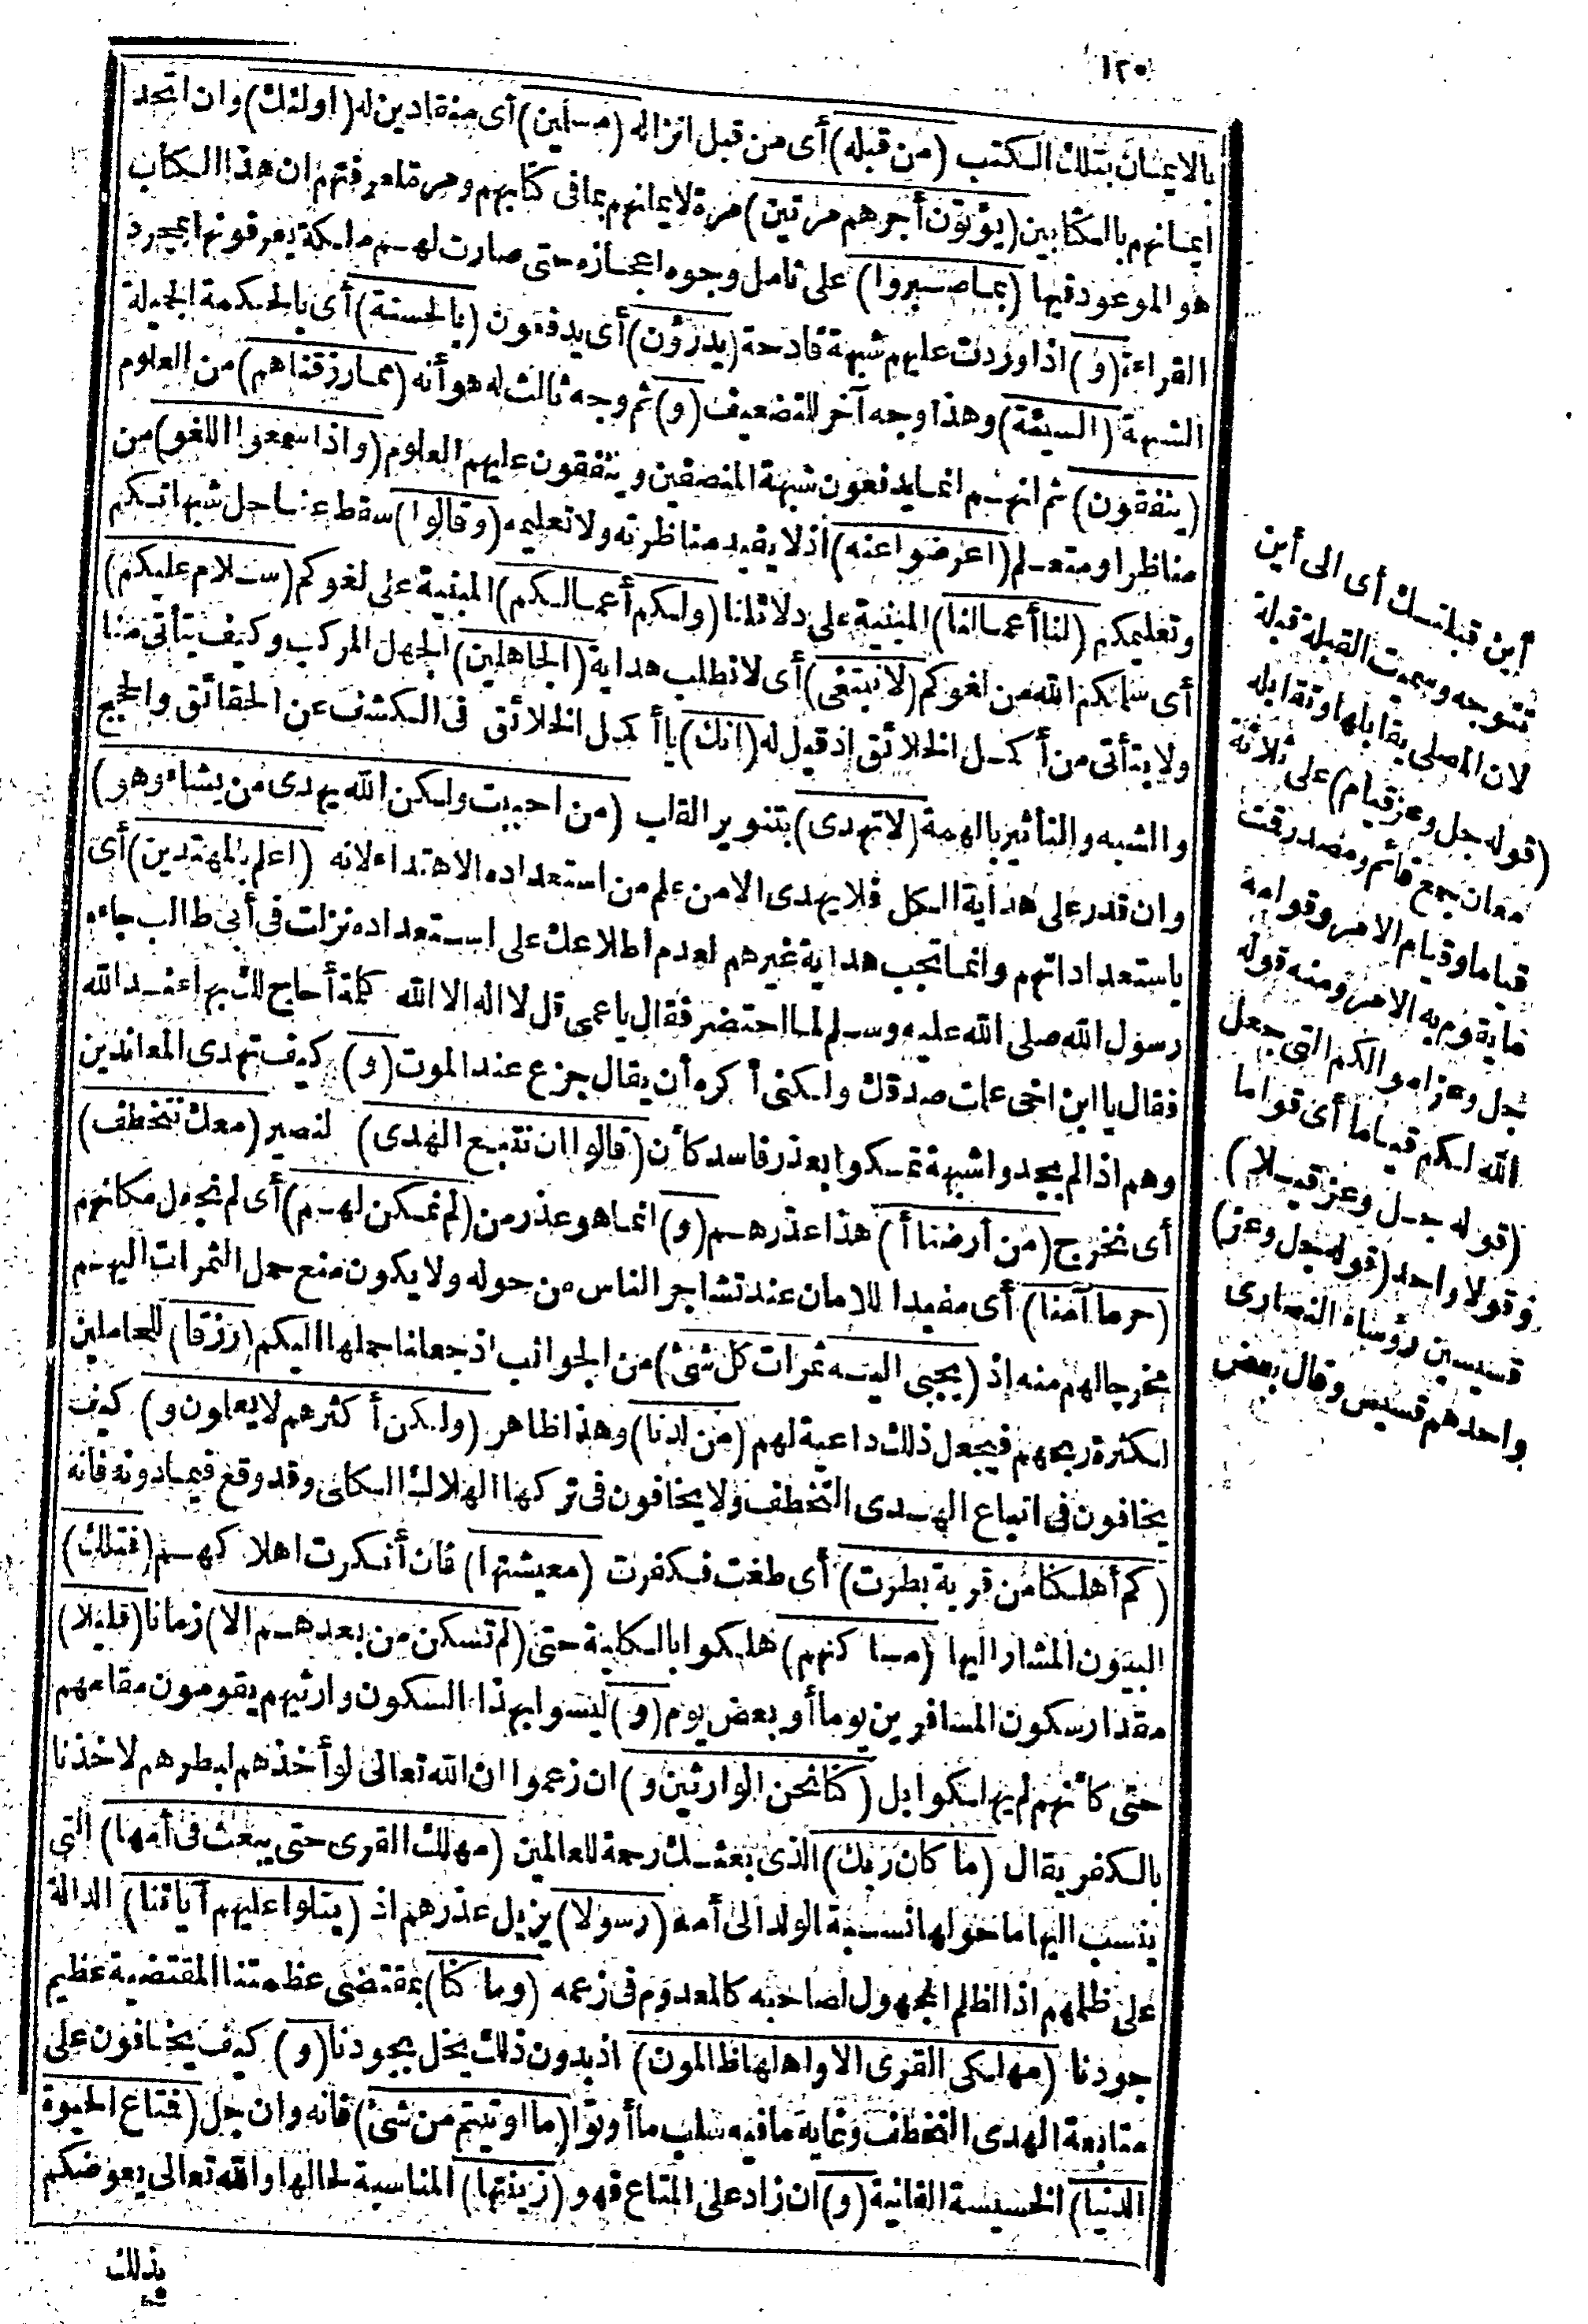 ١٢٠
بالايمان بتلك الكتب (من قبله) أى من قبل انزاله (مسلمين) أى منقادين له (اولئك) وان اتحد
ايمانهم بالكتابين (يؤتون أجرهم مرتين) مرة لايمانهم بما فى كتابهم ومرة لمعرفتهم ان هذا الكتاب
هو الموعود فيها (بما صبروا) على تأمل وجوه اعجازه حتى صارت لهم ملكة يعرفونها بمجرد
القراءة (و) اذا وردت عليهم شبهة قادحة (يدرؤن) أى يدفعون (بالحسنة) أى بالحكمة الجميلة
الشبهة (السيئة) وهذا وجه آخر للتضعيف (و) ثم وجه ثالث له هو أنه (مما رزقناهم) من العلوم
(ينفقون) ثم انهم انما يدفعون شبهة المنصفين وينفقون عليهم العلوم (واذا سمعوا اللغو) من
مناظر او متعلم (اعرضوا عنه) اذ لا يفيد مناظرته ولا تعليمه (وقالوا) سقط عنا حل شبهاتكم
وتعليمكم (لنا أعمالنا) المبنية على دلائلنا (ولكم أعمالكم) المبنية على لغوكم (سلام عليكم)
أى سلمكم الله من لغوكم (لا نبتغى) أى لا نطلب هداية (الجاهلين) الجهل المركب وكيف يتأتى منا
ولا يتأتى من أكمل الخلائق اذ قيل له (انك) يا أكمل الخلائق فى الكشف عن الحقائق والحجج
والشبه والتأثير بالهمة (لا تهدى) بتنوير القلب (من احببت ولكن الله يهدى من يشاء وهو)
وان قدر على هداية الكل فلا يهدى الا من علم من استعداده الاهتداء لانه (اعلم بالمهتدين) أى
باستعداداتهم وانما تحب هداية غيرهم لعدم اطلاعك على استعداده نزلت فى أبى طالب جاءه
رسول الله صلى الله عليه وسلم لما احتضر فقال يا عمى قل لا اله الا الله كلمة أحاج لك بها عند الله
فقال يا ابن اخى علمت صدقك ولكنى أكره أن يقال جزع عند الموت (و) كيف تهدى المعاندين
وهم اذا لم يجدوا شبهة تمسكوا بعذر فاسد كأن (قالوا ان نتبع الهدى) لنصير (معك نتخطف)
أى نخرج (من أرضنا أ) هذا عذرهم (و) انما هو عذر من (لم نمكن لهم) أى لم نجعل مكانهم
(حرما آمنا) أى مفيدا للامان عند تشاجر الناس من حوله ولا يكون منع حمل الثمرات اليهم
مخرجا لهم منه اذ (يجبى اليه ثمرات كل شئ) من الجوانب اذ جعلنا حملها اليكم (رزقا) للحاملين
لكثرة ربحهم فيجعل ذلك داعية لهم (من لدنا) وهذا ظاهر (ولكن أكثرهم لا يعلمون و) كيف
يخافون فى اتباع الهدى التخطف ولا يخافون فى تركها الهلاك الكلى وقد وقع فيما دونه فانه
(كم أهلكنا من قرية بطرت) أى طغت فكفرت (معيشتها) فان أنكرت اهلاكهم (فتلك)
البيوت المشار اليها (مساكنهم) هلكوا بالكلية حتى (لم تسكن من بعدهم الا) زمانا (قليلا)
مقدار سكون المسافرين يوما أو بعض يوم (و) ليسوا بهذا السكون وارثيهم يقومون مقامهم
حتى كأنهم لم يهلكوا بل (كنا نحن الوارثين و) ان زعموا ان الله تعالى لو أخذهم لبطرهم لاخذنا
بالكفر يقال (ما كان ربك) الذى بعثك رحمة للعالمين (مهلك القرى حتى يبعث فى أمها) التى
ينسب اليها ما حولها نسبة الولد الى أمه (رسولا) يزيل عذرهم اذ (يتلوا عليهم آياتنا) الدالة
على ظلمهم اذ الظلم المجهول لصاحبه كالمعدوم فى زعمه (وما كنا) بمقتضى عظمتنا المقتضية عظيم
جودنا (مهلكى القرى الا واهلها ظالمون) اذ بدون ذلك يخل بجودنا (و) كيف يخافون على
متابعة الهدى التخطف وغاية ما فيه سلب ما أوتوا (ما اوتيتم من شئ) فانه وان جل (فمتاع الحيوة
الدنيا) الخسيسة الفانية (و) ان زاد على المتاع فهو (زينتها) المناسبة لحالها والله تعالى يعوضكم
بذلك
أين قبلتك أى الى أين
تتوجه وسميت القبلة قبلة
لان المصلى يقابلها وتقابله
(قوله جل وعز قيام) على ثلاثة
معان جمع قائم ومصدر قمت
قياما وقيام الامر وقوامه
ما يقوم به الامر ومنه قوله
جل وعز اموالكم التى جعل
الله لكم قياما أى قواما
(قوله جل وعز قيلا)
وقولا واحد (قوله جل وعز)
قسيسين رؤساء النصارى
واحدهم قسيس وقال بعض